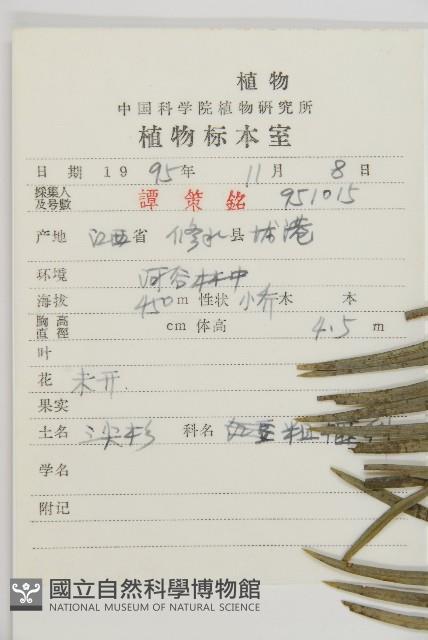 植物
中国科学院植物研究所
植物标本室
日期 1995年 11月 8日
採集人及号数 譚策銘 951015
产地 江西省 修水县 城港
环境 河谷林中
海拔 450m 性状 小乔木 本
胸高直徑 cm 体高 4.5 m
叶
花 未开
果实
土名 三尖杉 科名
学名
附记
國立自然科學博物館
NATIONAL MUSEUM OF NATURAL SCIENCE